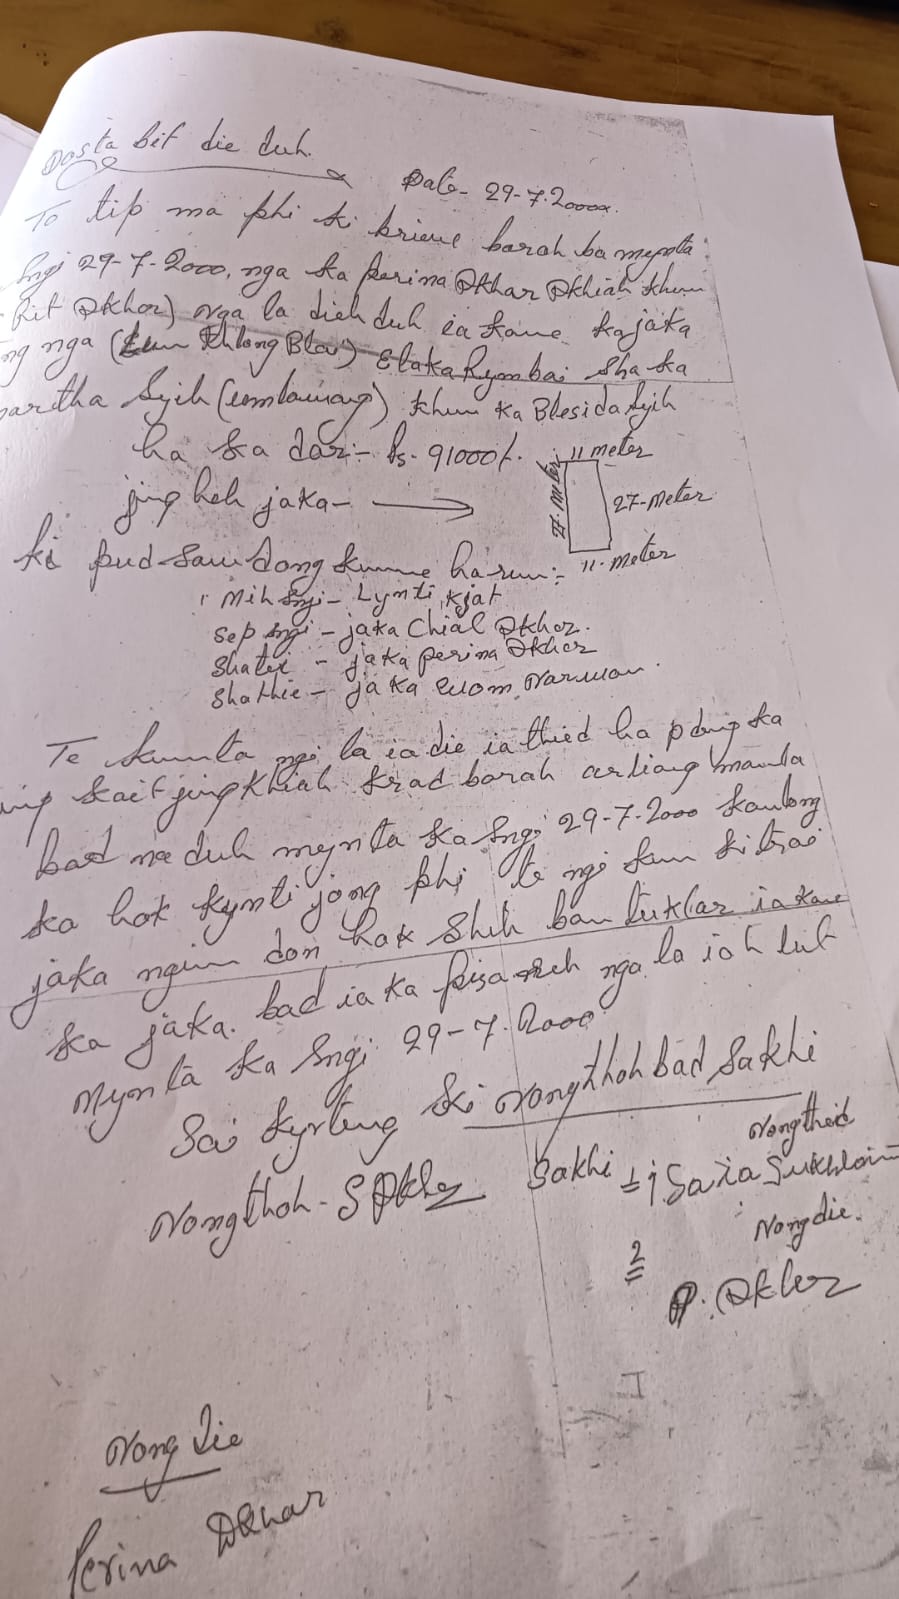 Dosta bit die duh.
Date- 29-7-2000
To tip ma phi ki briew barah ba mynta
Sngi 29-7-2000, nga ka perina Dkhar Dkhiah khun
Rit Dkhar) nga la dieh duh ia kane kajaka
ng nga ( Khlong Blai) Elaka Rymbai Sha ka
martha Syih (umlawang) khun ka Blesida Syih
ha ka dar:- Rs. 91000/-
11 meter
27-meter
27-meter
11-meter
jing heh jaka-
ki pud Sawdong kumne harum:-
Mih Sngi- Lynti kjat
Sep Sngi - jaka Chial Dkhar.
Shatei - jaka perina Dkhar
Shathie - jaka
Te kumta ngi la ia die ia thied ha pdeng ka
jing kait jingkhiah krad barah arliang manla
bad naduh mynta ka Sngi 29-7-2000 kalong
ka hok kynti jong phi te ngi kum ki trai
jaka ngim don hok Shuh ban tuklar ia kane
ka jaka. bad ia ka pisa ruh nga la ioh lut
Mynta ka Sngi 29-7-2000
Soi kyrteng ki nongthoh bad Sakhi
Nongthoh- S Dkhar
Sakhi = 1 Saia Sukhlain
Nongthied
Nongdie.
2
P. Dkhar
Nong die
Perina Dkhar